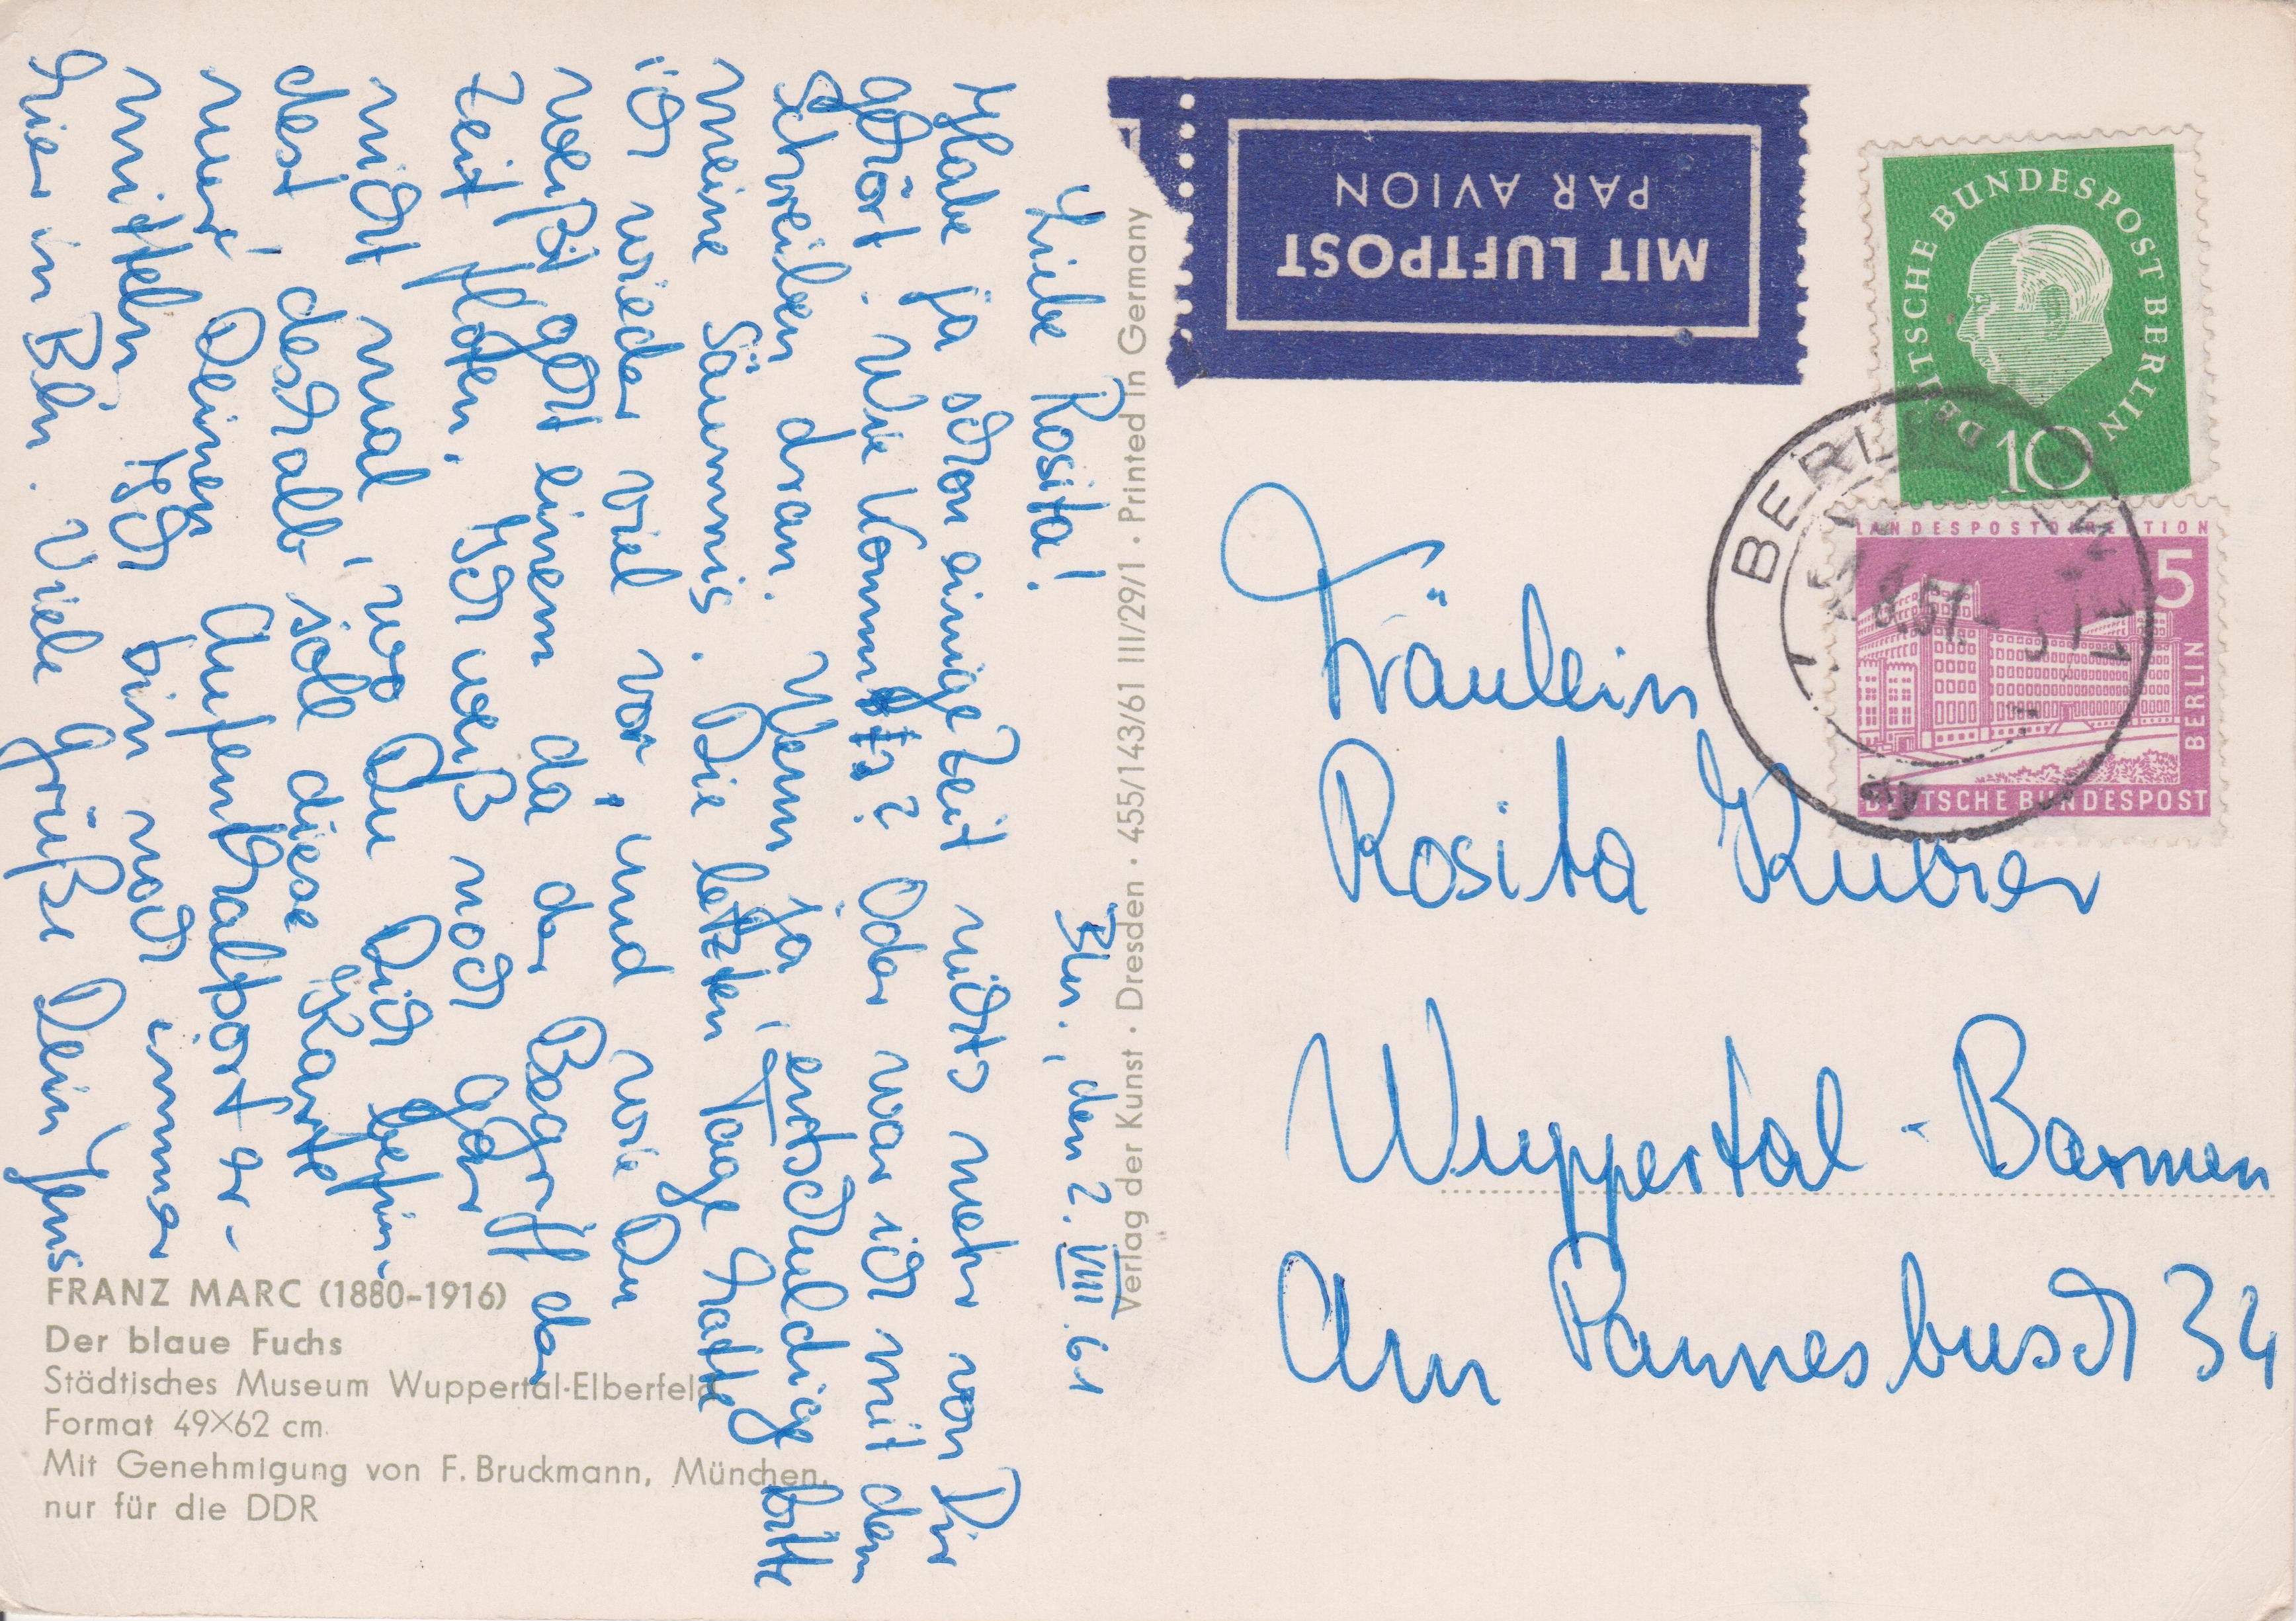 Bln., den 2. VIII. 61
Liebe Rosita!
Habe ja schon einige Zeit nichts mehr von Dir
gehört. Wie kommts? Oder war ich mit dem
Schreiben dran. Wenn ja, entschuldige bitte
meine Säumnis. Die letzten Tage hatte
ich wieder viel vor, und wie Du
weißt geht einem da der Begriff der
Zeit flöten. Ich weiß noch gar
nicht mal, wo Du Dich befin-
dest, deshalb soll diese Karte
nur Deinen Aufenthalport er-
mitteln. Ich bin noch immer
hier in Bln. Viele Grüße Dein Jens
Verlag der Kunst · Dresden · 455/143/61 III/29/1 · Printed in Germany
FRANZ MARC (1880-1916)
Der blaue Fuchs
Städtisches Museum Wuppertal-Elberfeld
Format 49×62 cm
Mit Genehmigung von F. Bruckmann, München,
nur für die DDR
MIT LUFTPOST
PAR AVION
DEUTSCHE BUNDESPOST BERLIN
10
LANDESPOSTDIREKTION
5
BERLIN
DEUTSCHE BUNDESPOST
BERLIN
Fräulein
Rosita
Wuppertal-Barmen
Am Pannesbusch 34